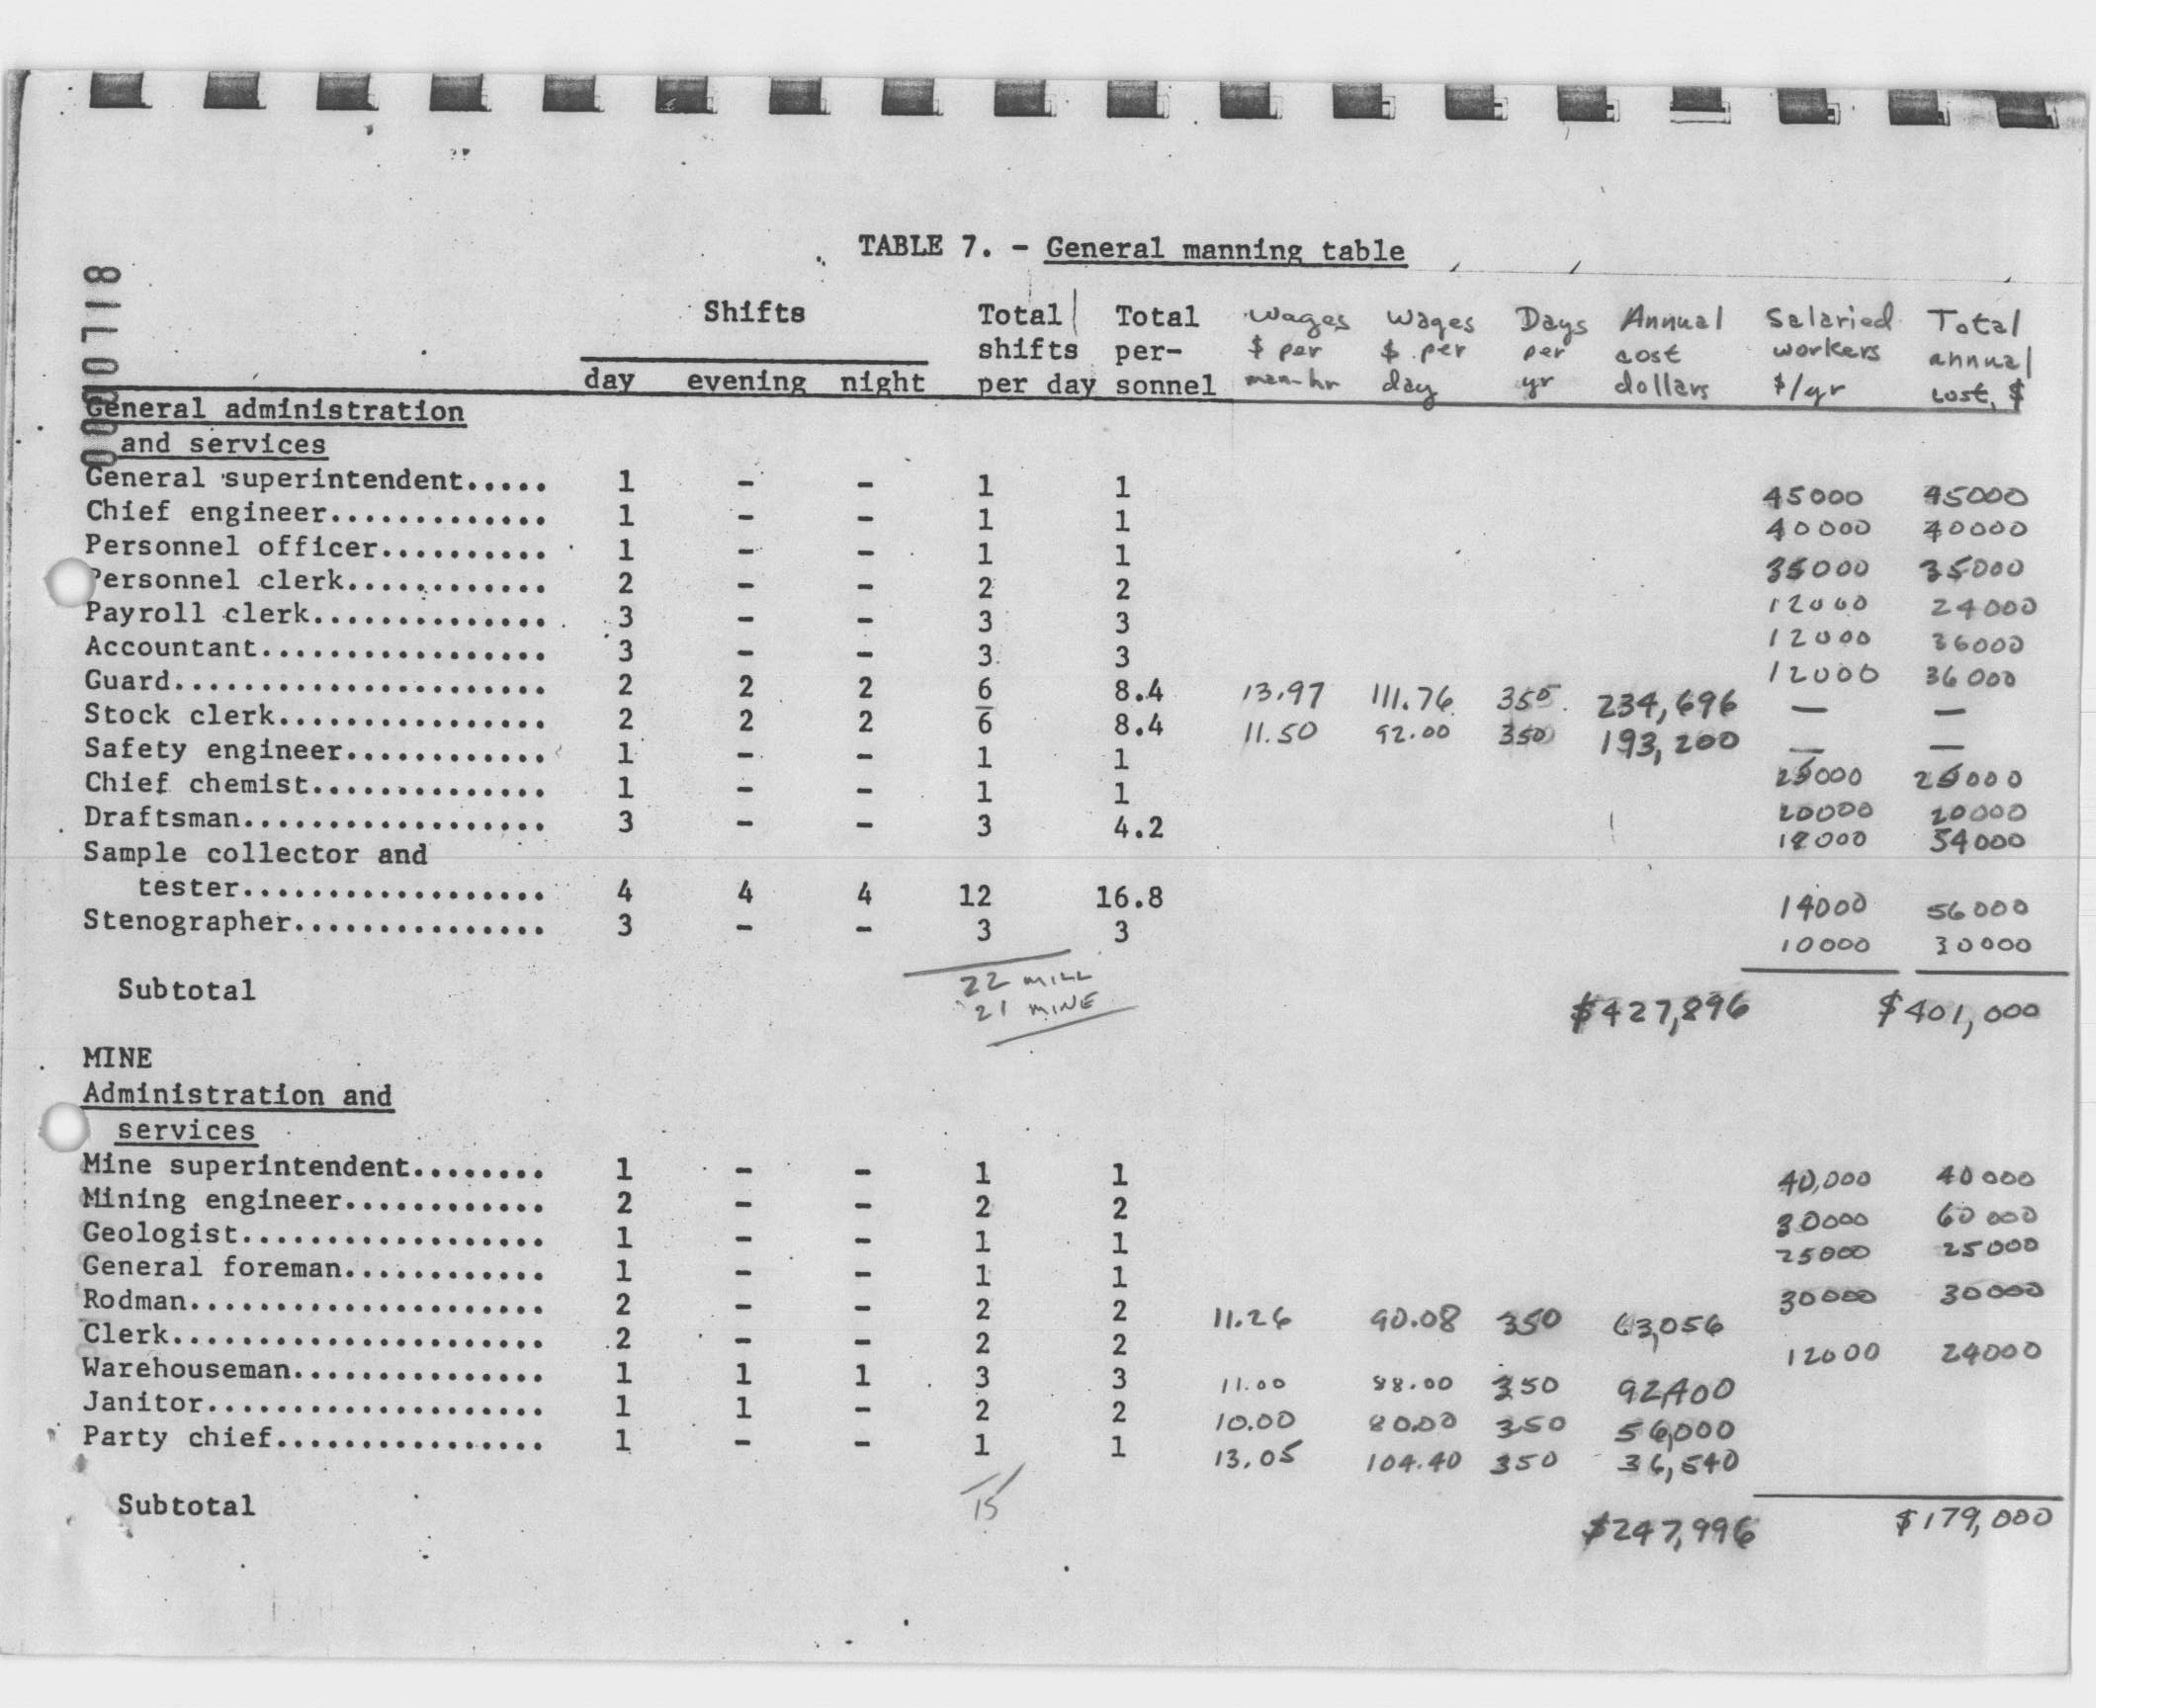 TABLE 7. - General manning table
81L0000
Shifts Total Total Wages Wages Days Annual Salaried Total
shifts per- $ per $ per per cost workers annual
day evening night per day sonnel man-hr day yr dollars $/yr cost, $
General administration
and services
General superintendent..... 1 - - 1 1 45000 45000
Chief engineer............. 1 - - 1 1 40000 40000
Personnel officer.......... 1 - - 1 1 35000 35000
Personnel clerk............ 2 - - 2 2 12000 24000
Payroll clerk.............. 3 - - 3 3 12000 36000
Accountant................. 3 - - 3 3 12000 36000
Guard...................... 2 2 2 6 8.4 13.97 111.76 350 234,696 — —
Stock clerk................ 2 2 2 6 8.4 11.50 92.00 350 193,200 — —
Safety engineer............ 1 - - 1 1 25000 25000
Chief chemist.............. 1 - - 1 1 20000 20000
Draftsman.................. 3 - - 3 4.2 18000 54000
Sample collector and
tester.................. 4 4 4 12 16.8 14000 56000
Stenographer............... 3 - - 3 3 10000 30000
22 MILL
21 MINE
Subtotal $427,896 $401,000
MINE
Administration and
services
Mine superintendent........ 1 - - 1 1 40,000 40000
Mining engineer............ 2 - - 2 2 30000 60000
Geologist.................. 1 - - 1 1 25000 25000
General foreman............ 1 - - 1 1 30000 30000
Rodman..................... 2 - - 2 2 11.26 90.08 350 63,056
Clerk...................... 2 - - 2 2 12000 24000
Warehouseman............... 1 1 1 3 3 11.00 88.00 350 92,400
Janitor.................... 1 1 - 2 2 10.00 80.00 350 56,000
Party chief................ 1 - - 1 1 13.05 104.40 350 36,540
15
Subtotal $247,996 $179,000